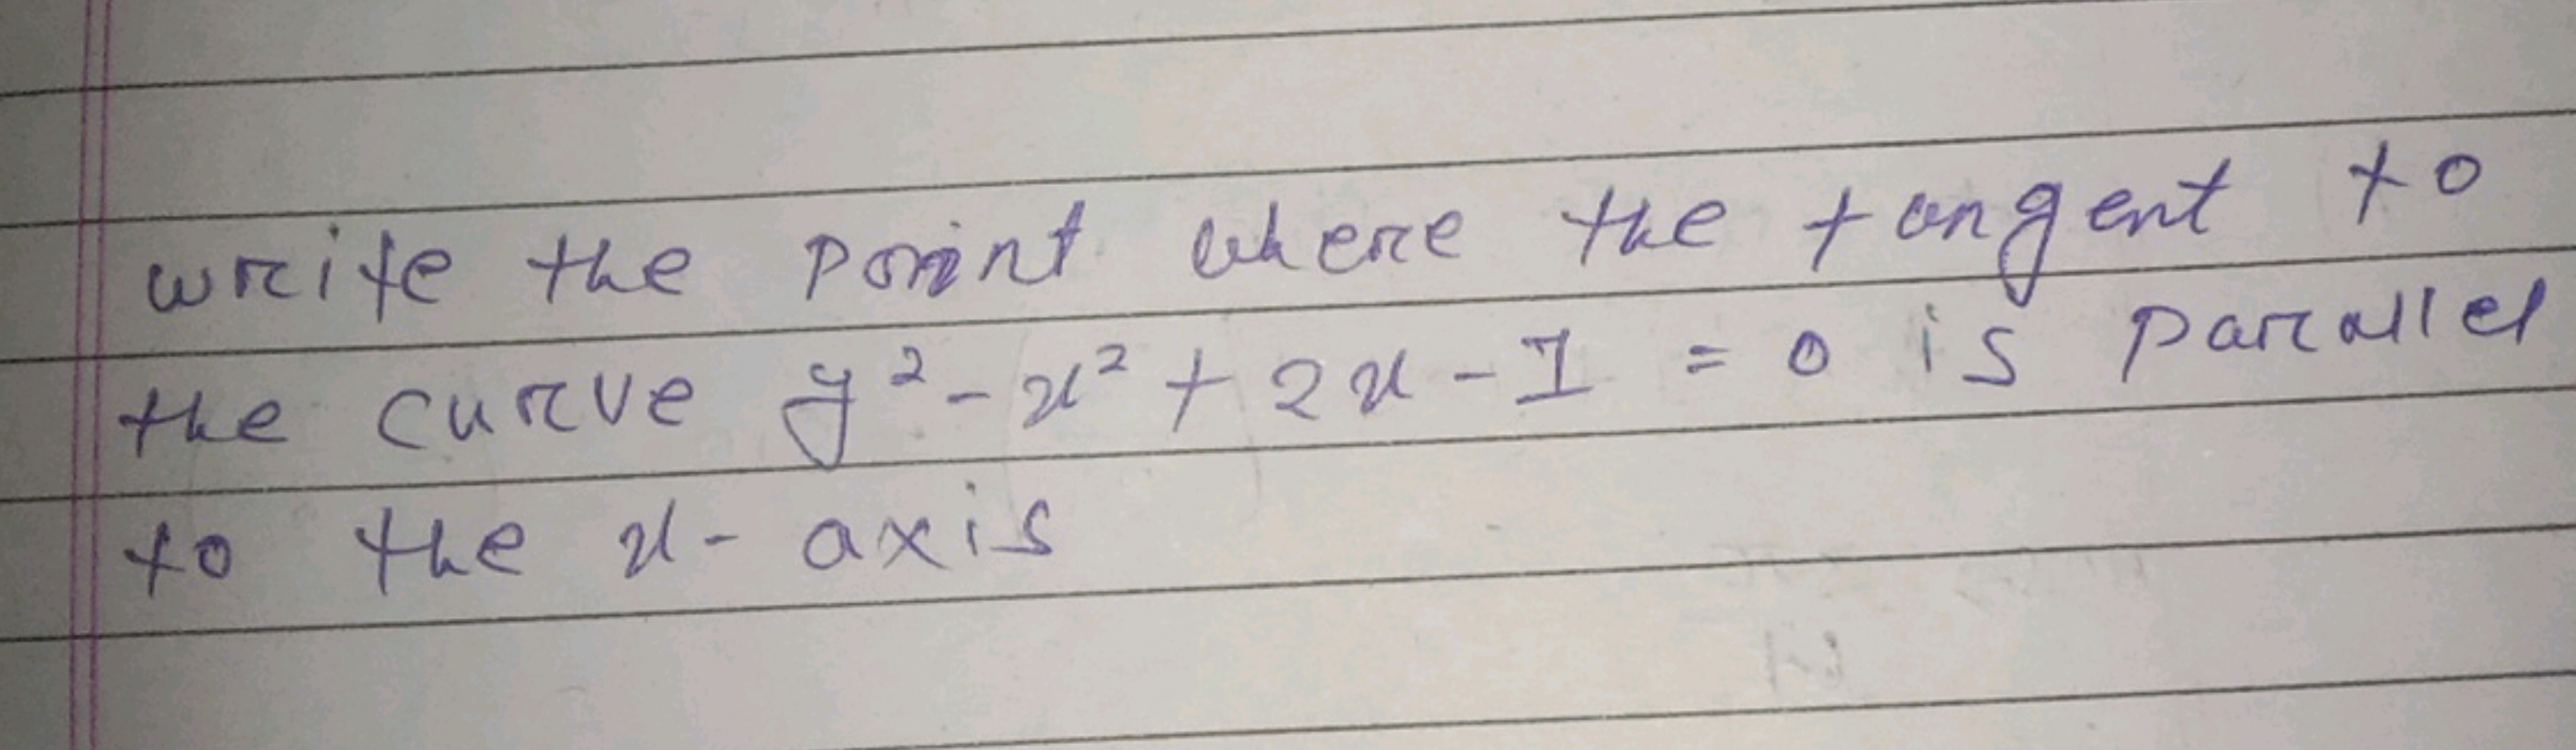 write the point where the tangent to
the curve y² - x² + 2x - 1 = 0 is parallel
to the x- axis